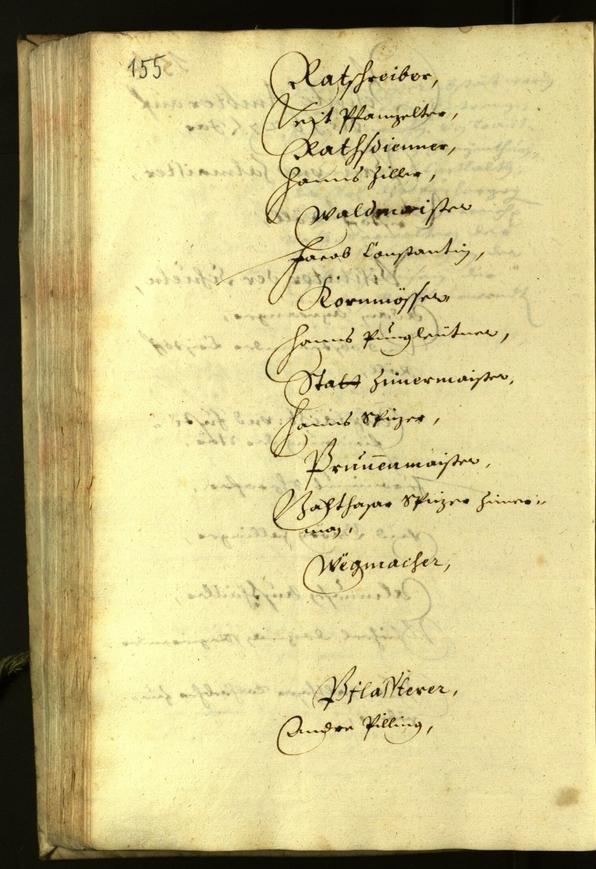 155
Ratschreiber,
Veit Pfanzelter,
Rathsdienner,
Hanns Ziller,
Waldmaister
Jacob Constantin,
Kornmösser
Hanns Pungleutner,
Statt Zimermaister,
Hanns Spizer,
Prunenmaister,
Balthasar Spizer Zimer-
man,
Wegmacher,
Pflassterer,
Andre Pilling,